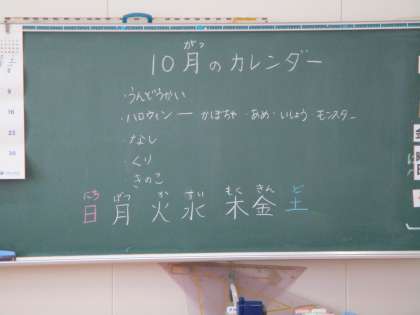 10月のカレンダー
がつ
・うんどうかい
・ハロウィン ー かぼちゃ ・あめ ・いしょう モンスター
・なし
・くり
きのこ
にち げつ か すい もく きん ど
日 月 火 水 木 金 土